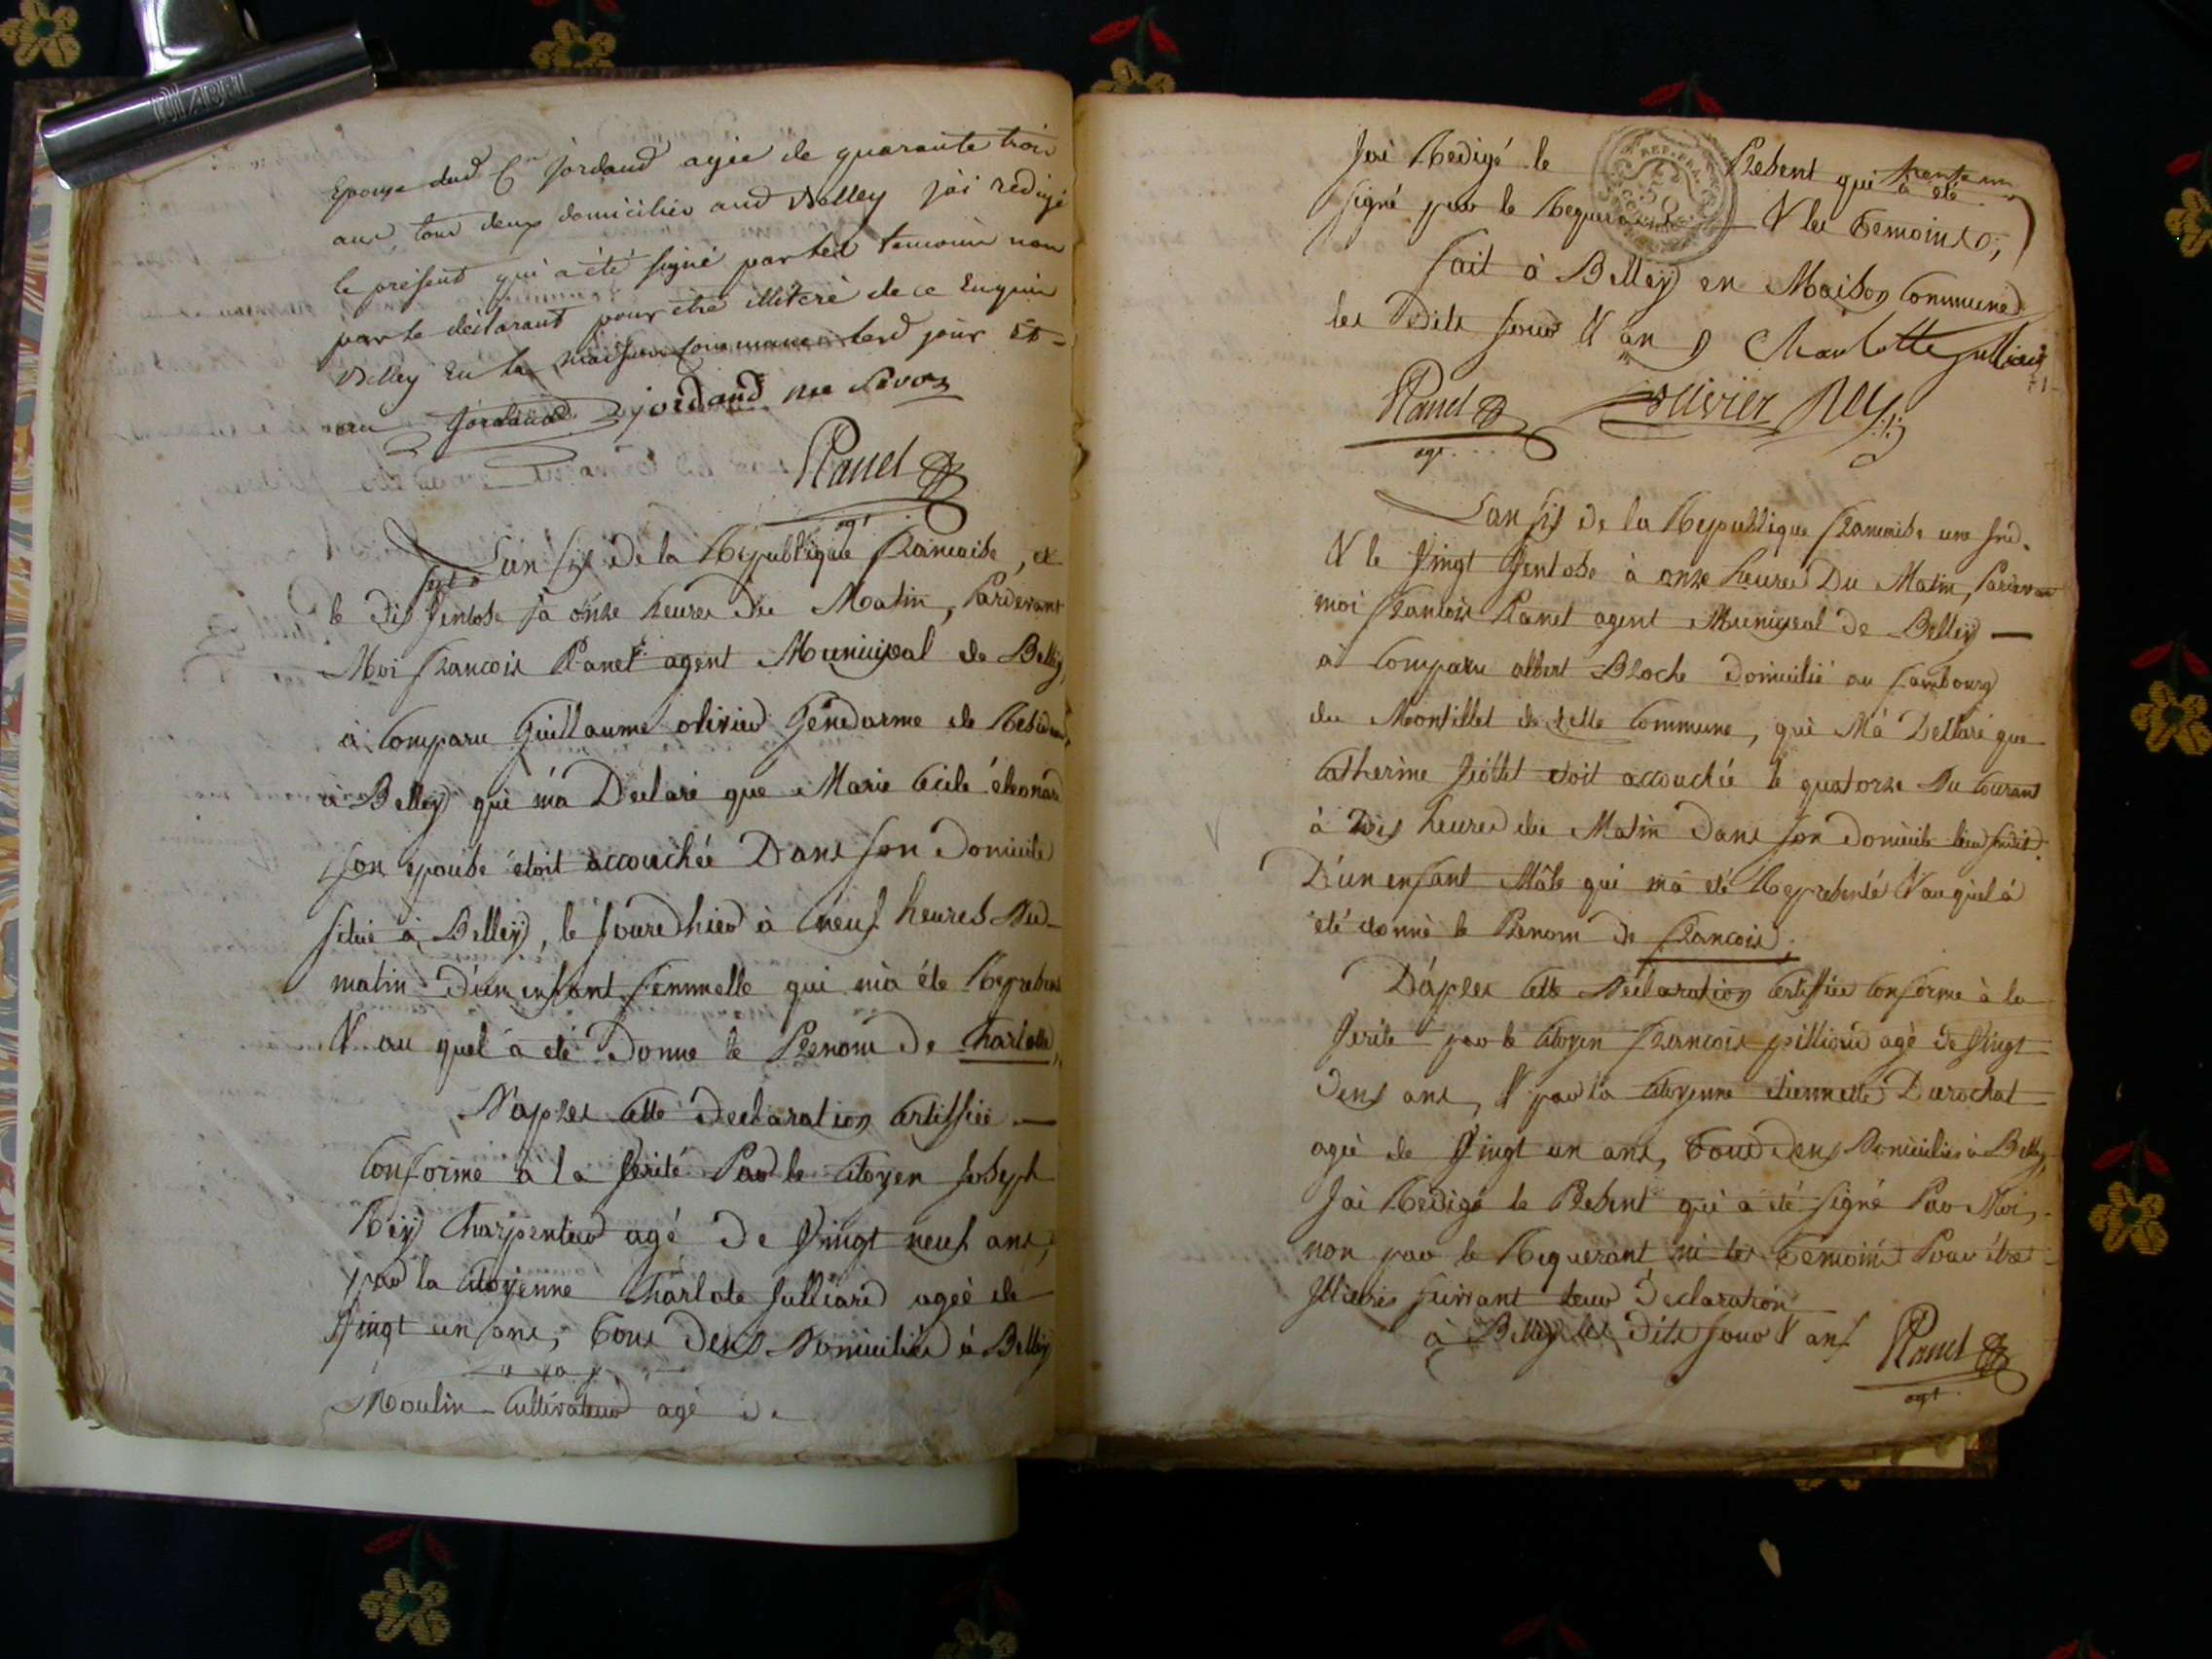 DIABEL
Epouse dud Cen jordand agée de quarante trois
ans, tous deux domiciliés aud Belley j'ai rédigé
le présent qui a été signé par les temoins non
par le déclarant pour etre illiteré de ce Enquis
Belley En la maison commune lesd jour et
an jordand jordand née
Planet
agt
L'an six de la Republique francaise, et
le dix sept Ventose à onze heures du Matin, Pardevant
Moi francois Planet agent Municipal de Belley,
à Comparu Guillaume olivier Gendarme de Residence
à Belley qui m'a Declaré que Marie Cécile éléonard
son epouse étoit accouchée Dans son Domicile
situé à Belley, le jourdhier à neuf heures Du
matin D'un enfant femmelle qui m'a été Represent
& au quel à eté Donne le Prenom de Charlotte,
D'aprés cette Declaration Certiffiée
Conforme à la Verité Par le Citoyen Joseph
Reÿ Charpentier agé De Vingt neuf ans,
par la Citoyenne Charlote Julliard ageé de
Vingt un ans, Tous Deux Domiciliés à Belley
Moulin Cultivateur agé de
trente un
J'ai Redigé le Present qui a été
signé par le Requerant & les Temoins,
REP. FRA.
Fait à Belleÿ en Maison Commune
les Dits jour & an Charlotte julliard
Planet olivier Rey
agt
L'an six de la Republique francaise une Ind.
& le Vingt Ventose à onze heures Du Matin, Pardevan
moi francois Planet agent Municipal de Belleÿ
à Comparu albert Bloche Domicilié au fambourg
du Montillet de cette Commune, qui M'à Declaré que
Catherine étoit accouchée le quatorze Du Courant
à Dix heures du Matin Dans son Domicile lieu susdit.
D'un enfant Mâle qui m'a eté Represente & auquel à
été donné le Prenom de francois,
D'aprés cette Déclaration Certiffiée Conforme à la
Verité par le Citoyen francois agé De Vingt
Deux ans, & par la Citoyenne étiennette Durochat
ageé de Vingt un ans, Tous Deux Domiciliés à Belley,
J'ai Redigé le Present qui a été signé Par Moi,
non par le Requerant ni les Temoins Pour être
Illiterés suivant leur Declaration
à Belley les Dits jour & an Planet
agt